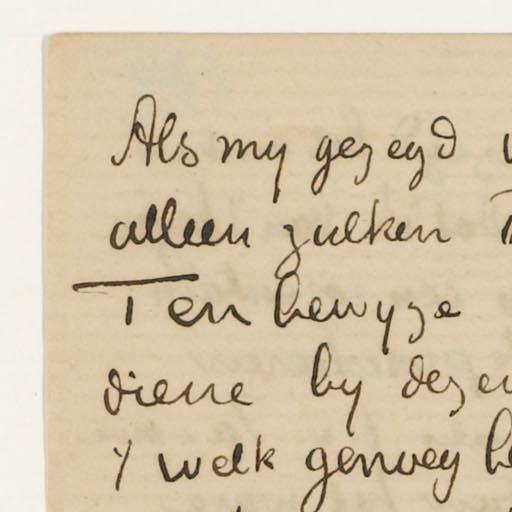 Als my gezegd
alleen zulken
Ten bewyze
diene by dezen
't welk genoeg